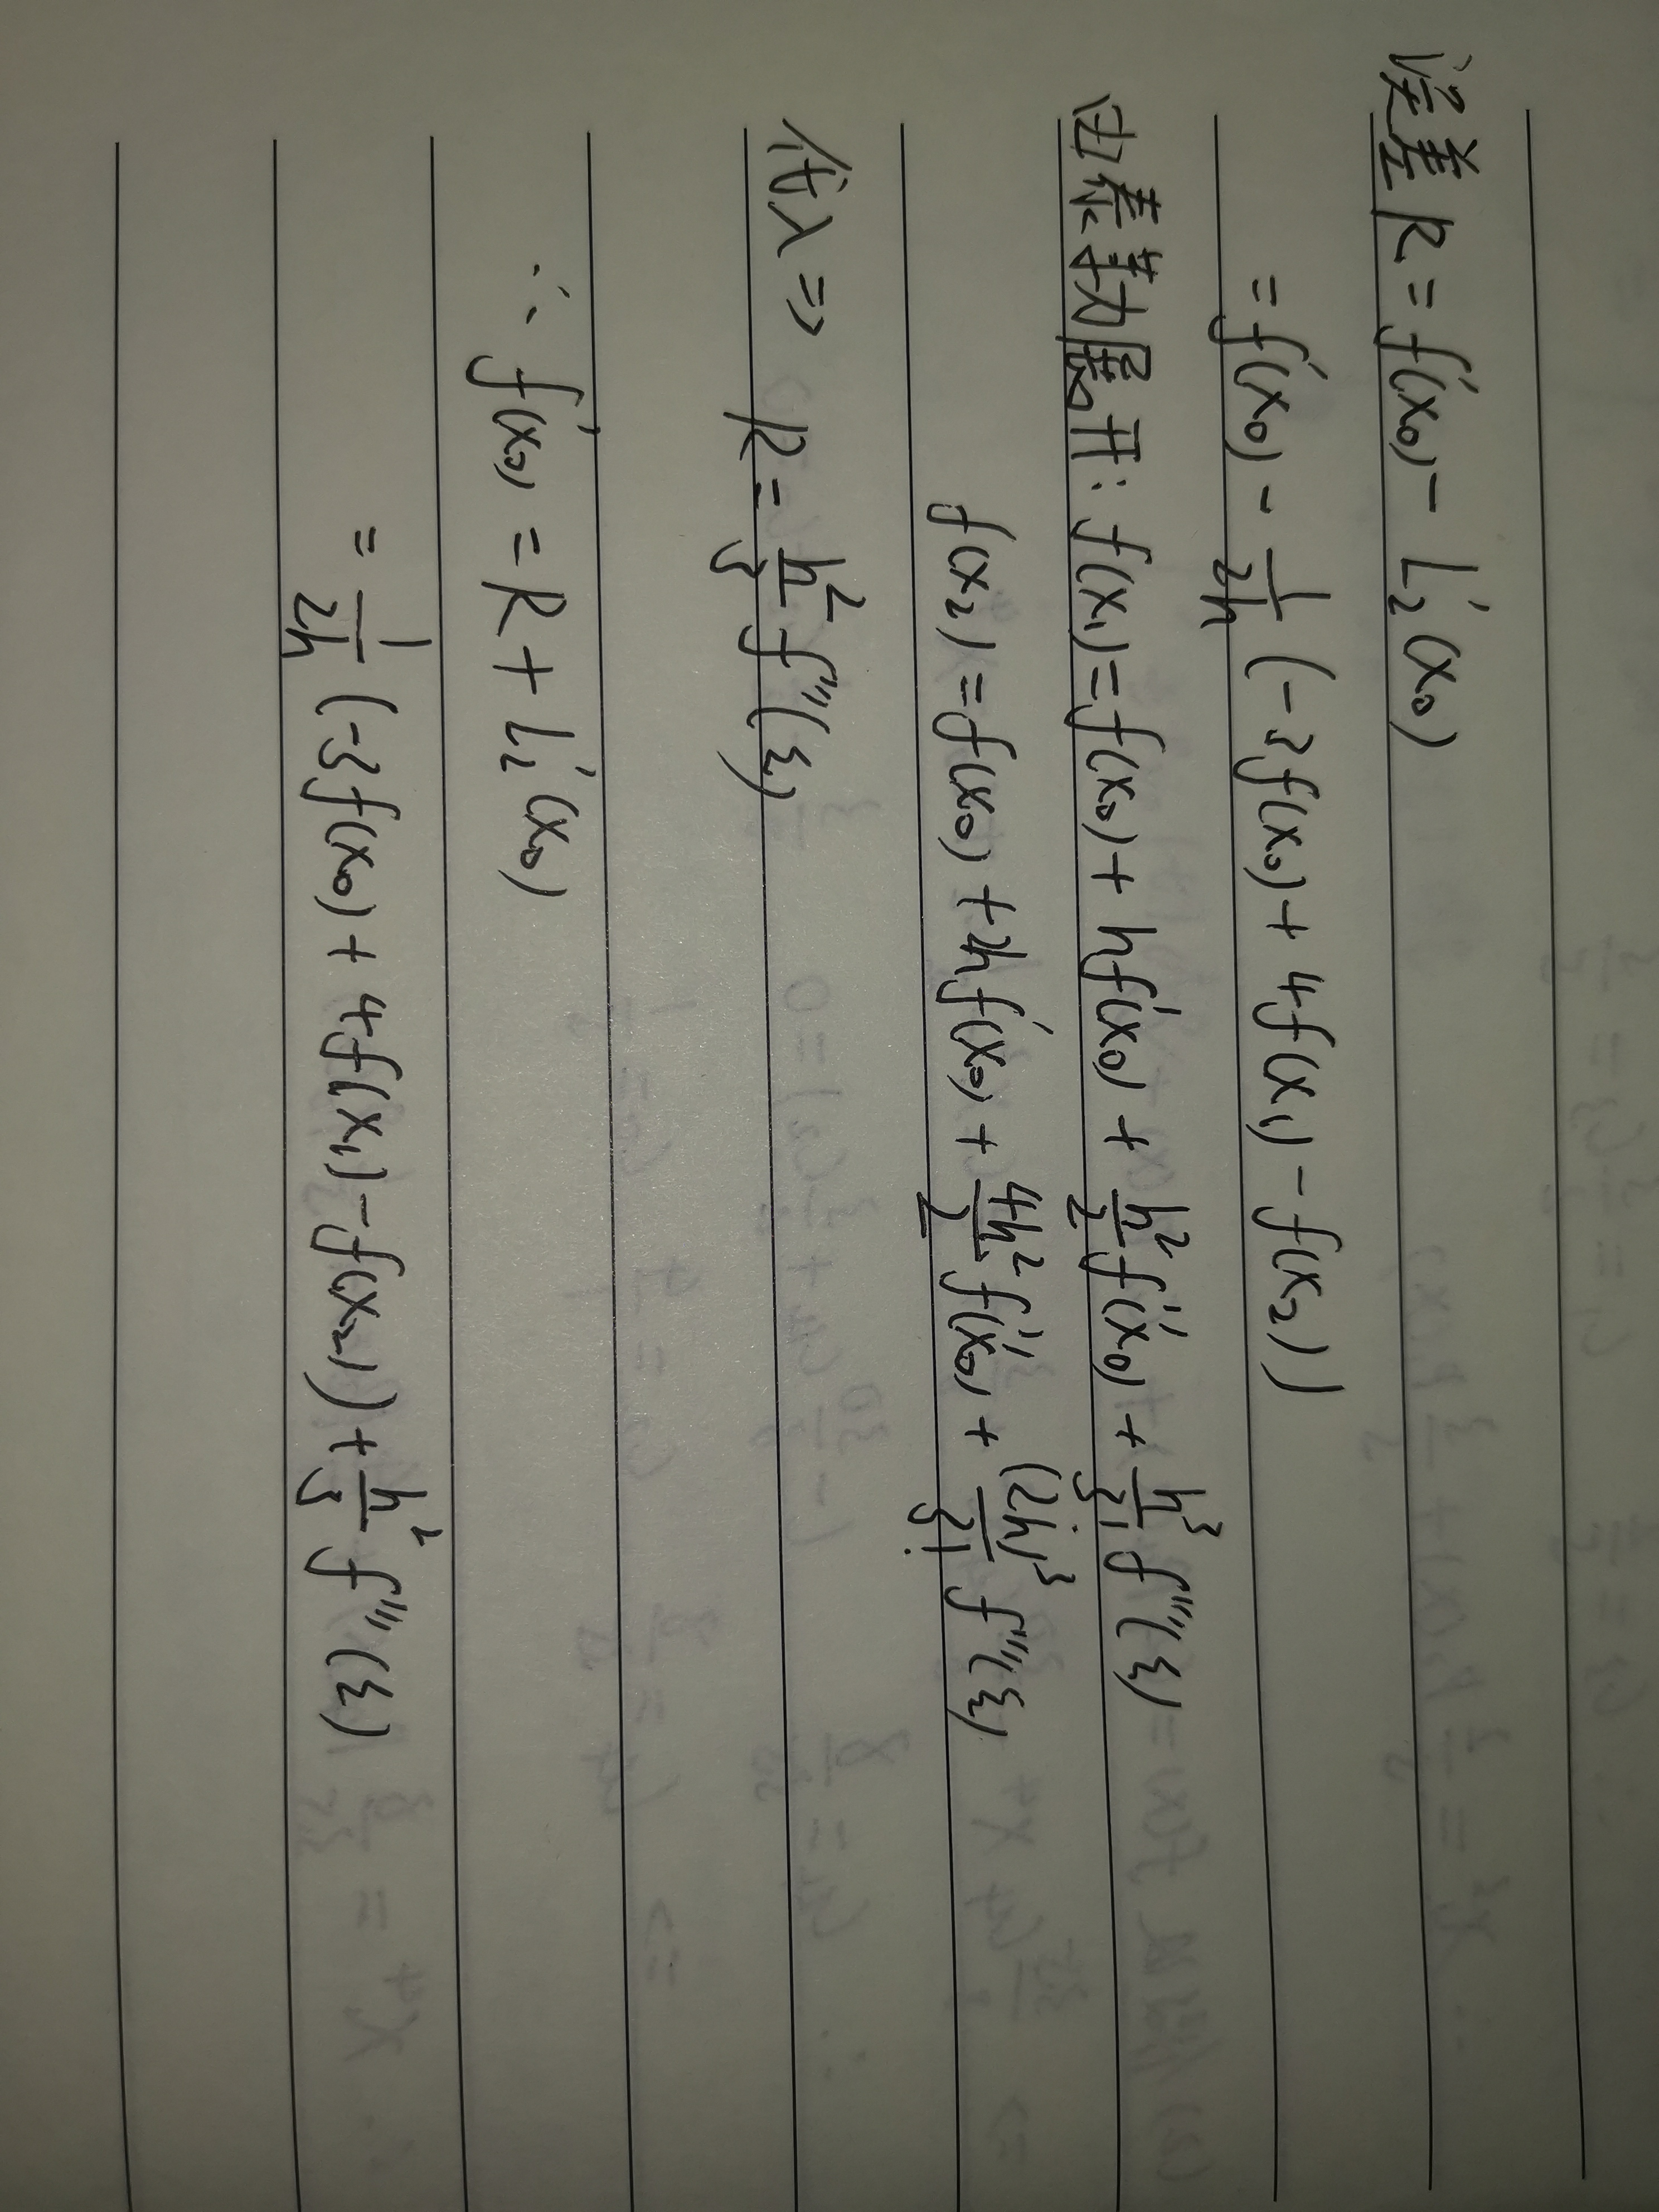 误差 R = f'(x₀) - L₂'(x₀)
= f'(x₀) - \frac{1}{2h} (-3f(x₀) + 4f(x₁) - f(x₂))
由泰勒展开: f(x₁) = f(x₀) + hf'(x₀) + \frac{h²}{2} f''(x₀) + \frac{h³}{3!} f'''(ξ)
f(x₂) = f(x₀) + 2hf'(x₀) + \frac{4h²}{2} f''(x₀) + \frac{(2h)³}{3!} f'''(ξ)
代入 => R = \frac{h²}{3} f'''(ξ)
∴ f'(x₀) = R + L₂'(x₀)
= \frac{1}{2h} (-3f(x₀) + 4f(x₁) - f(x₂)) + \frac{h²}{3} f'''(ξ)